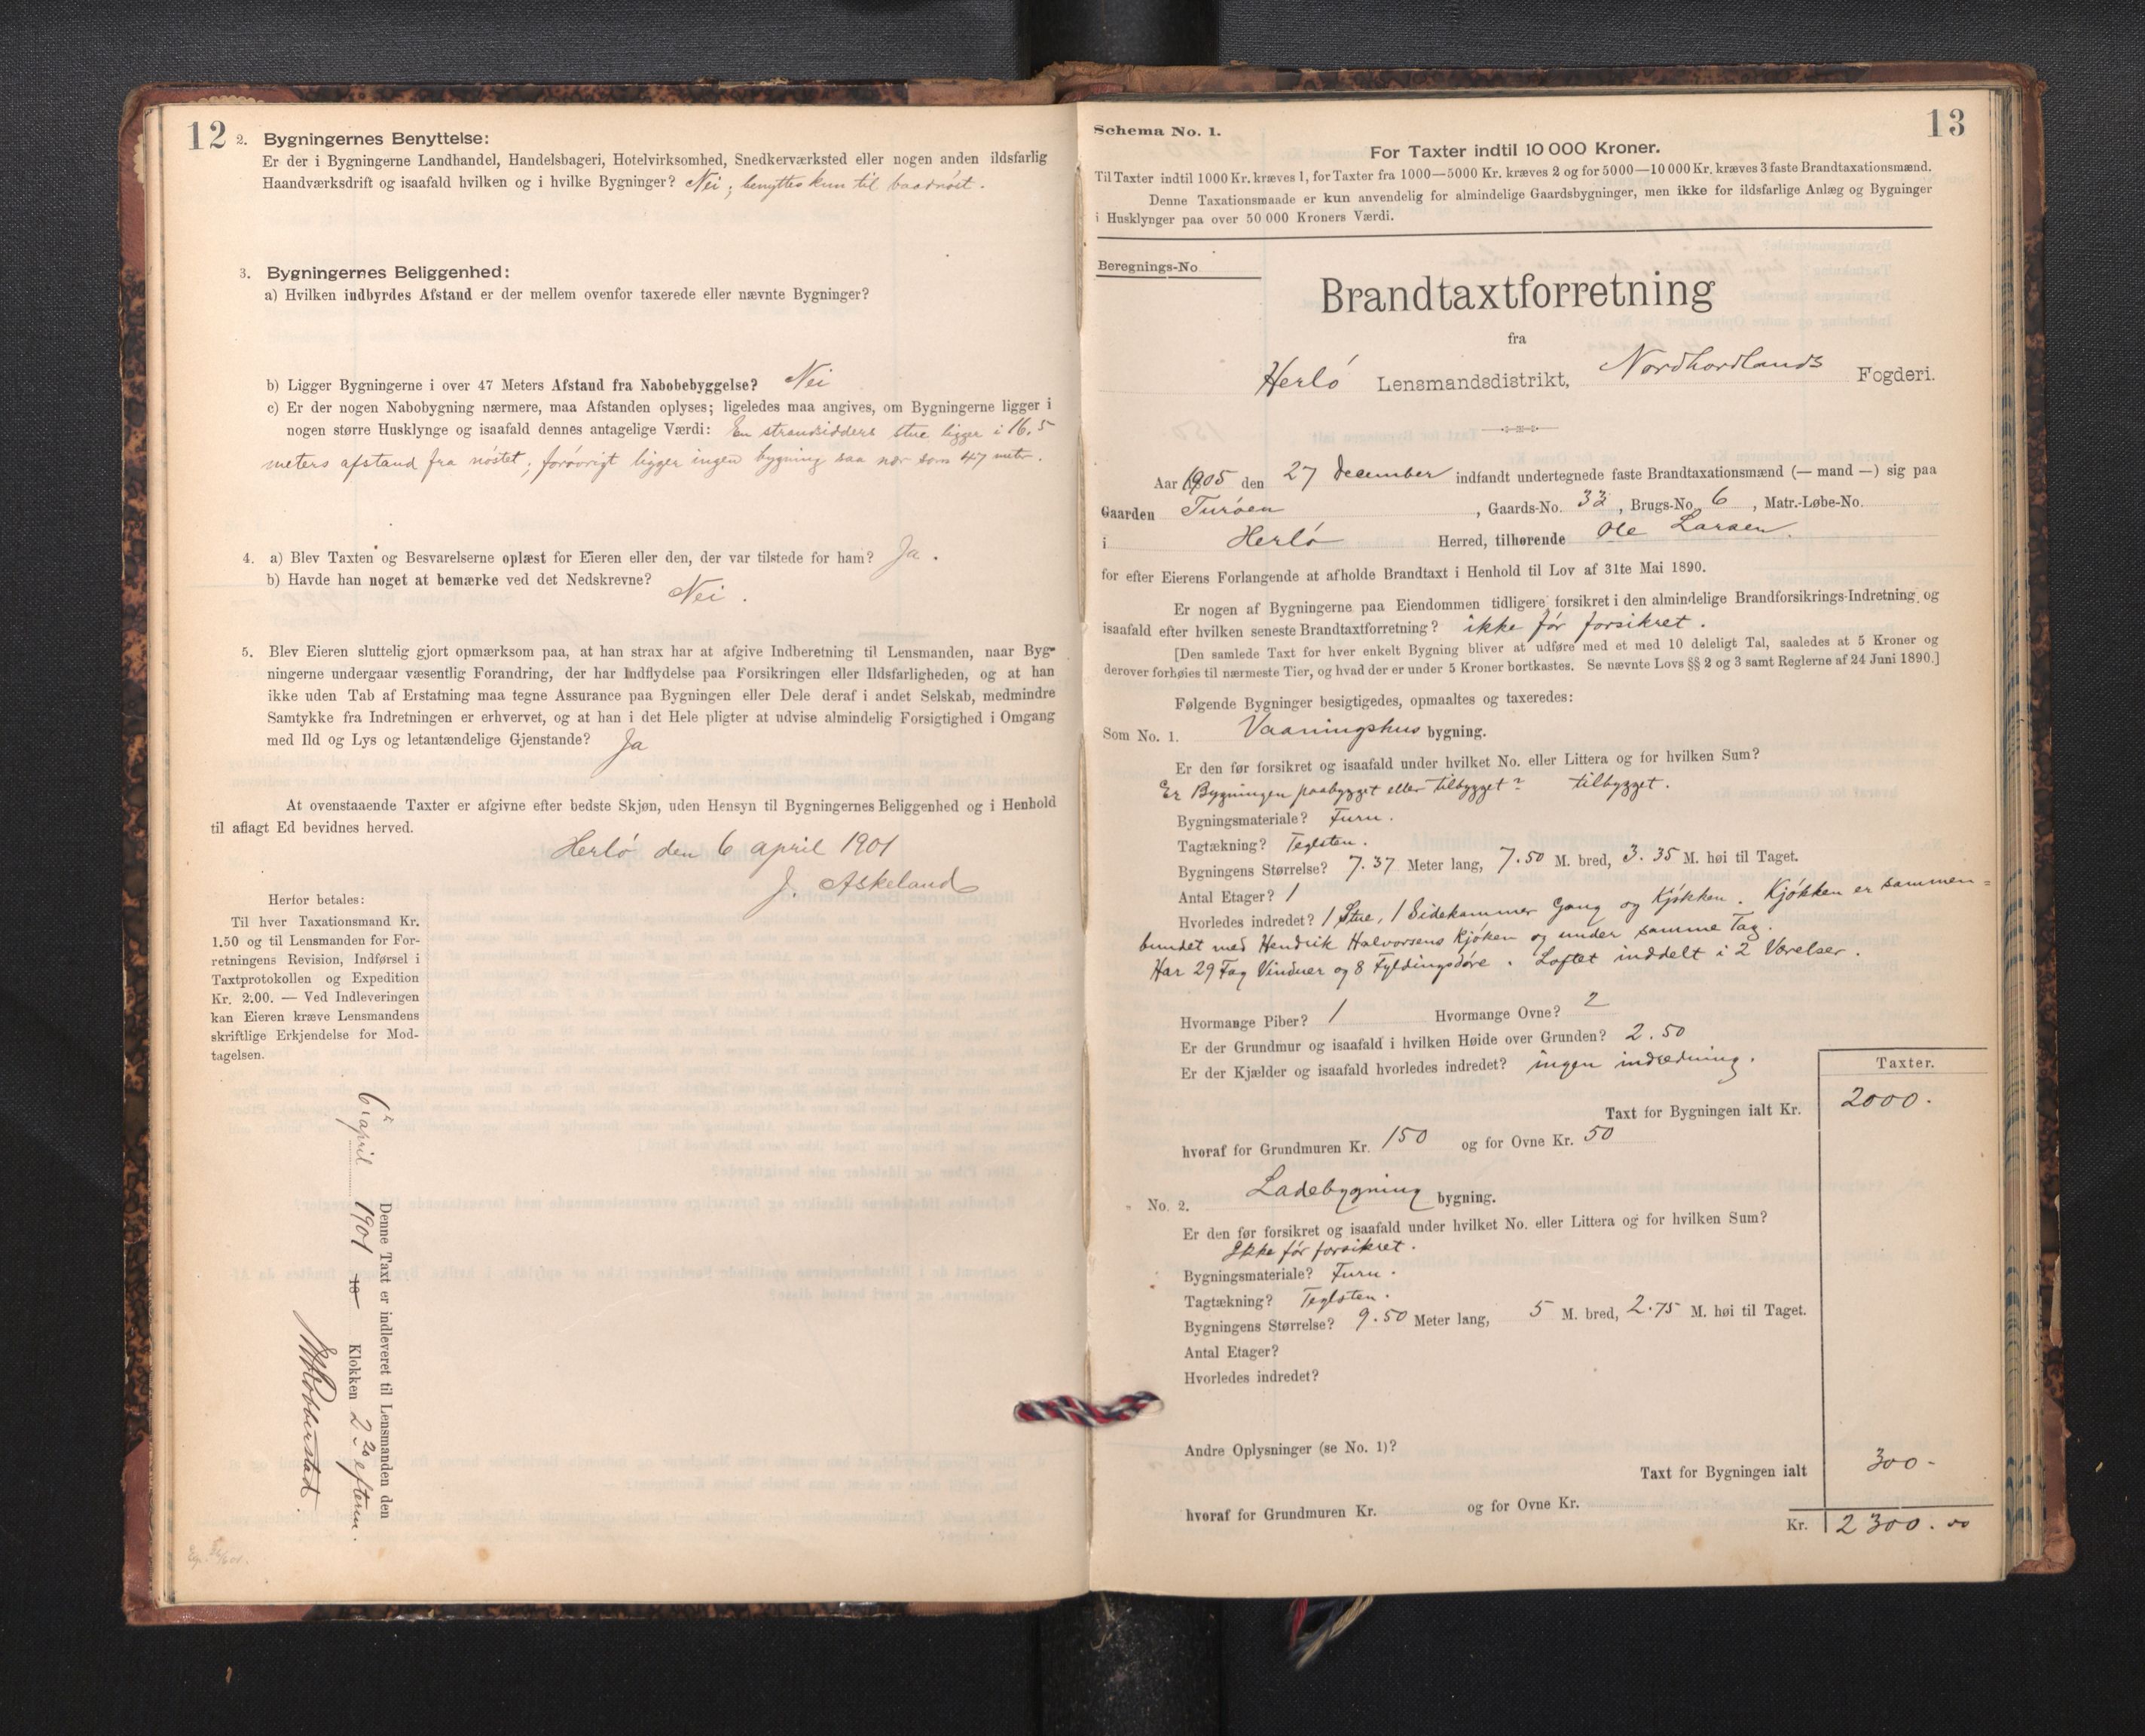 12
2. Bygningernes Benyttelse:
Er der i Bygningerne Landhandel, Handelsbageri, Hotelvirksomhed, Snedkerværksted eller nogen anden ildsfarlig
Haandværksdrift og isaafald hvilken og i hvilke Bygninger? Nei; benyttes kun til baadnóst.
3. Bygningernes Beliggenhed:
a) Hvilken indbyrdes Afstand er der mellem ovenfor taxerede eller nævnte Bygninger?
b) Ligger Bygningerne i over 47 Meters Afstand fra Nabobebyggelse? Nei
c) Er der nogen Nabobygning nærmere, maa Afstanden oplyses; ligeledes maa angives, om Bygningerne ligger i
nogen større Husklynge og isaafald dennes antagelige Værdi: En strandsidders stue ligger i 16,5
meters afstand fra nóstet; forøvrigt ligger ingen bygning saa nær som 47 meter.
4. a) Blev Taxten og Besvarelserne oplæst for Eieren eller den, der var tilstede for ham? Ja.
b) Havde han noget at bemærke ved det Nedskrevne? Nei.
5. Blev Eieren sluttelig gjort opmærksom paa, at han strax har at afgive Indberetning til Lensmanden, naar Byg-
ningerne undergaar væsentlig Forandring, der har Indflydelse paa Forsikringen eller Ildsfarligheden, og at han
ikke uden Tab af Erstatning maa tegne Assurance paa Bygningen eller Dele deraf i andet Selskab, medmindre
Samtykke fra Indretningen er erhvervet, og at han i det Hele pligter at udvise almindelig Forsigtighed i Omgang
med Ild og Lys og letantændelige Gjenstande? Ja
At ovenstaaende Taxter er afgivne efter bedste Skjøn, uden Hensyn til Bygningernes Beliggenhed og i Henhold
til aflagt Ed bevidnes herved.
Herló den 6 april 1901
J. Askeland
Herfor betales:
Til hver Taxationsmand Kr.
1.50 og til Lensmanden for For-
retningens Revision, Indførsel i
Taxtprotokollen og Expedition
Kr. 2.00. — Ved Indleveringen
kan Eieren kræve Lensmandens
skriftlige Erkjendelse for Mod-
tagelsen.
Denne Taxt er indleveret til Lensmanden den
6 april 1901 18 Klokken 2 20 efterm.
13
Schema No. 1.
For Taxter indtil 10 000 Kroner.
Til Taxter indtil 1000 Kr. kræves 1, for Taxter fra 1000—5000 Kr. kræves 2 og for 5000—10 000 Kr. kræves 3 faste Brandtaxationsmænd.
Denne Taxationsmaade er kun anvendelig for almindelige Gaardsbygninger, men ikke for ildsfarlige Anlæg og Bygninger
i Husklynger paa over 50 000 Kroners Værdi.
Beregnings-No
Brandtaxtforretning
fra
Herló Lensmandsdistrikt, Nordhordlands Fogderi.
Aar 1905 den 27 December indfandt undertegnede faste Brandtaxationsmænd (— mand —) sig paa
Gaarden Turóen, Gaards-No. 33, Brugs-No. 6, Matr.-Løbe-No.
i Herló Herred, tilhørende Ole Larsen.
for efter Eierens Forlangende at afholde Brandtaxt i Henhold til Lov af 31te Mai 1890.
Er nogen af Bygningerne paa Eiendommen tidligere forsikret i den almindelige Brandforsikrings-Indretning, og
isaafald efter hvilken seneste Brandtaxtforretning? ikke fór forsikret.
[Den samlede Taxt for hver enkelt Bygning bliver at udføre med et med 10 deleligt Tal, saaledes at 5 Kroner og
derover forhøies til nærmeste Tier, og hvad der er under 5 Kroner bortkastes. Se nævnte Lovs §§ 2 og 3 samt Reglerne af 24 Juni 1890.]
Følgende Bygninger besigtigedes, opmaaltes og taxeredes:
Som No. 1. Vaaningshus bygning.
Er den før forsikret og isaafald under hvilket No. eller Littera og for hvilken Sum?
Er Bygningen paabygget eller tilbygget? tilbygget.
Bygningsmateriale? Furu.
Tagtækning? Teglsten.
Bygningens Størrelse? 7.37 Meter lang, 7.50 M. bred, 3.35 M. høi til Taget.
Antal Etager? 1
Hvorledes indredet? 1 Stue, 1 Sidekammer Gang og Kjókken. Kjókken er sammen=
bundet med Hendrik Halvorsens Kjóken og under samme Tag.
Har 29 Fag Vinduer og 8 Fyldingsdóre. Loftet inddelt i 2 Værelser.
Hvormange Piber? 1 Hvormange Ovne? 2
Er der Grundmur og isaafald i hvilken Høide over Grunden? 2.50
Er der Kjælder og isaafald hvorledes indredet? ingen indredning.
Taxter.
Taxt for Bygningen ialt Kr. 2000.
hvoraf for Grundmuren Kr. 150 og for Ovne Kr. 50
" No. 2. Ladebygning bygning.
Er den før forsikret og isaafald under hvilket No. eller Littera og for hvilken Sum?
Ikke fór forsikret.
Bygningsmateriale? Furu.
Tagtækning? Teglsten.
Bygningens Størrelse? 9.50 Meter lang, 5 M. bred, 2.75 M. høi til Taget.
Antal Etager?
Hvorledes indredet?
Andre Oplysninger (se No. 1)?
Taxt for Bygningen ialt 300-
hvoraf for Grundmuren Kr. og for Ovne Kr.
Kr. 2300.00